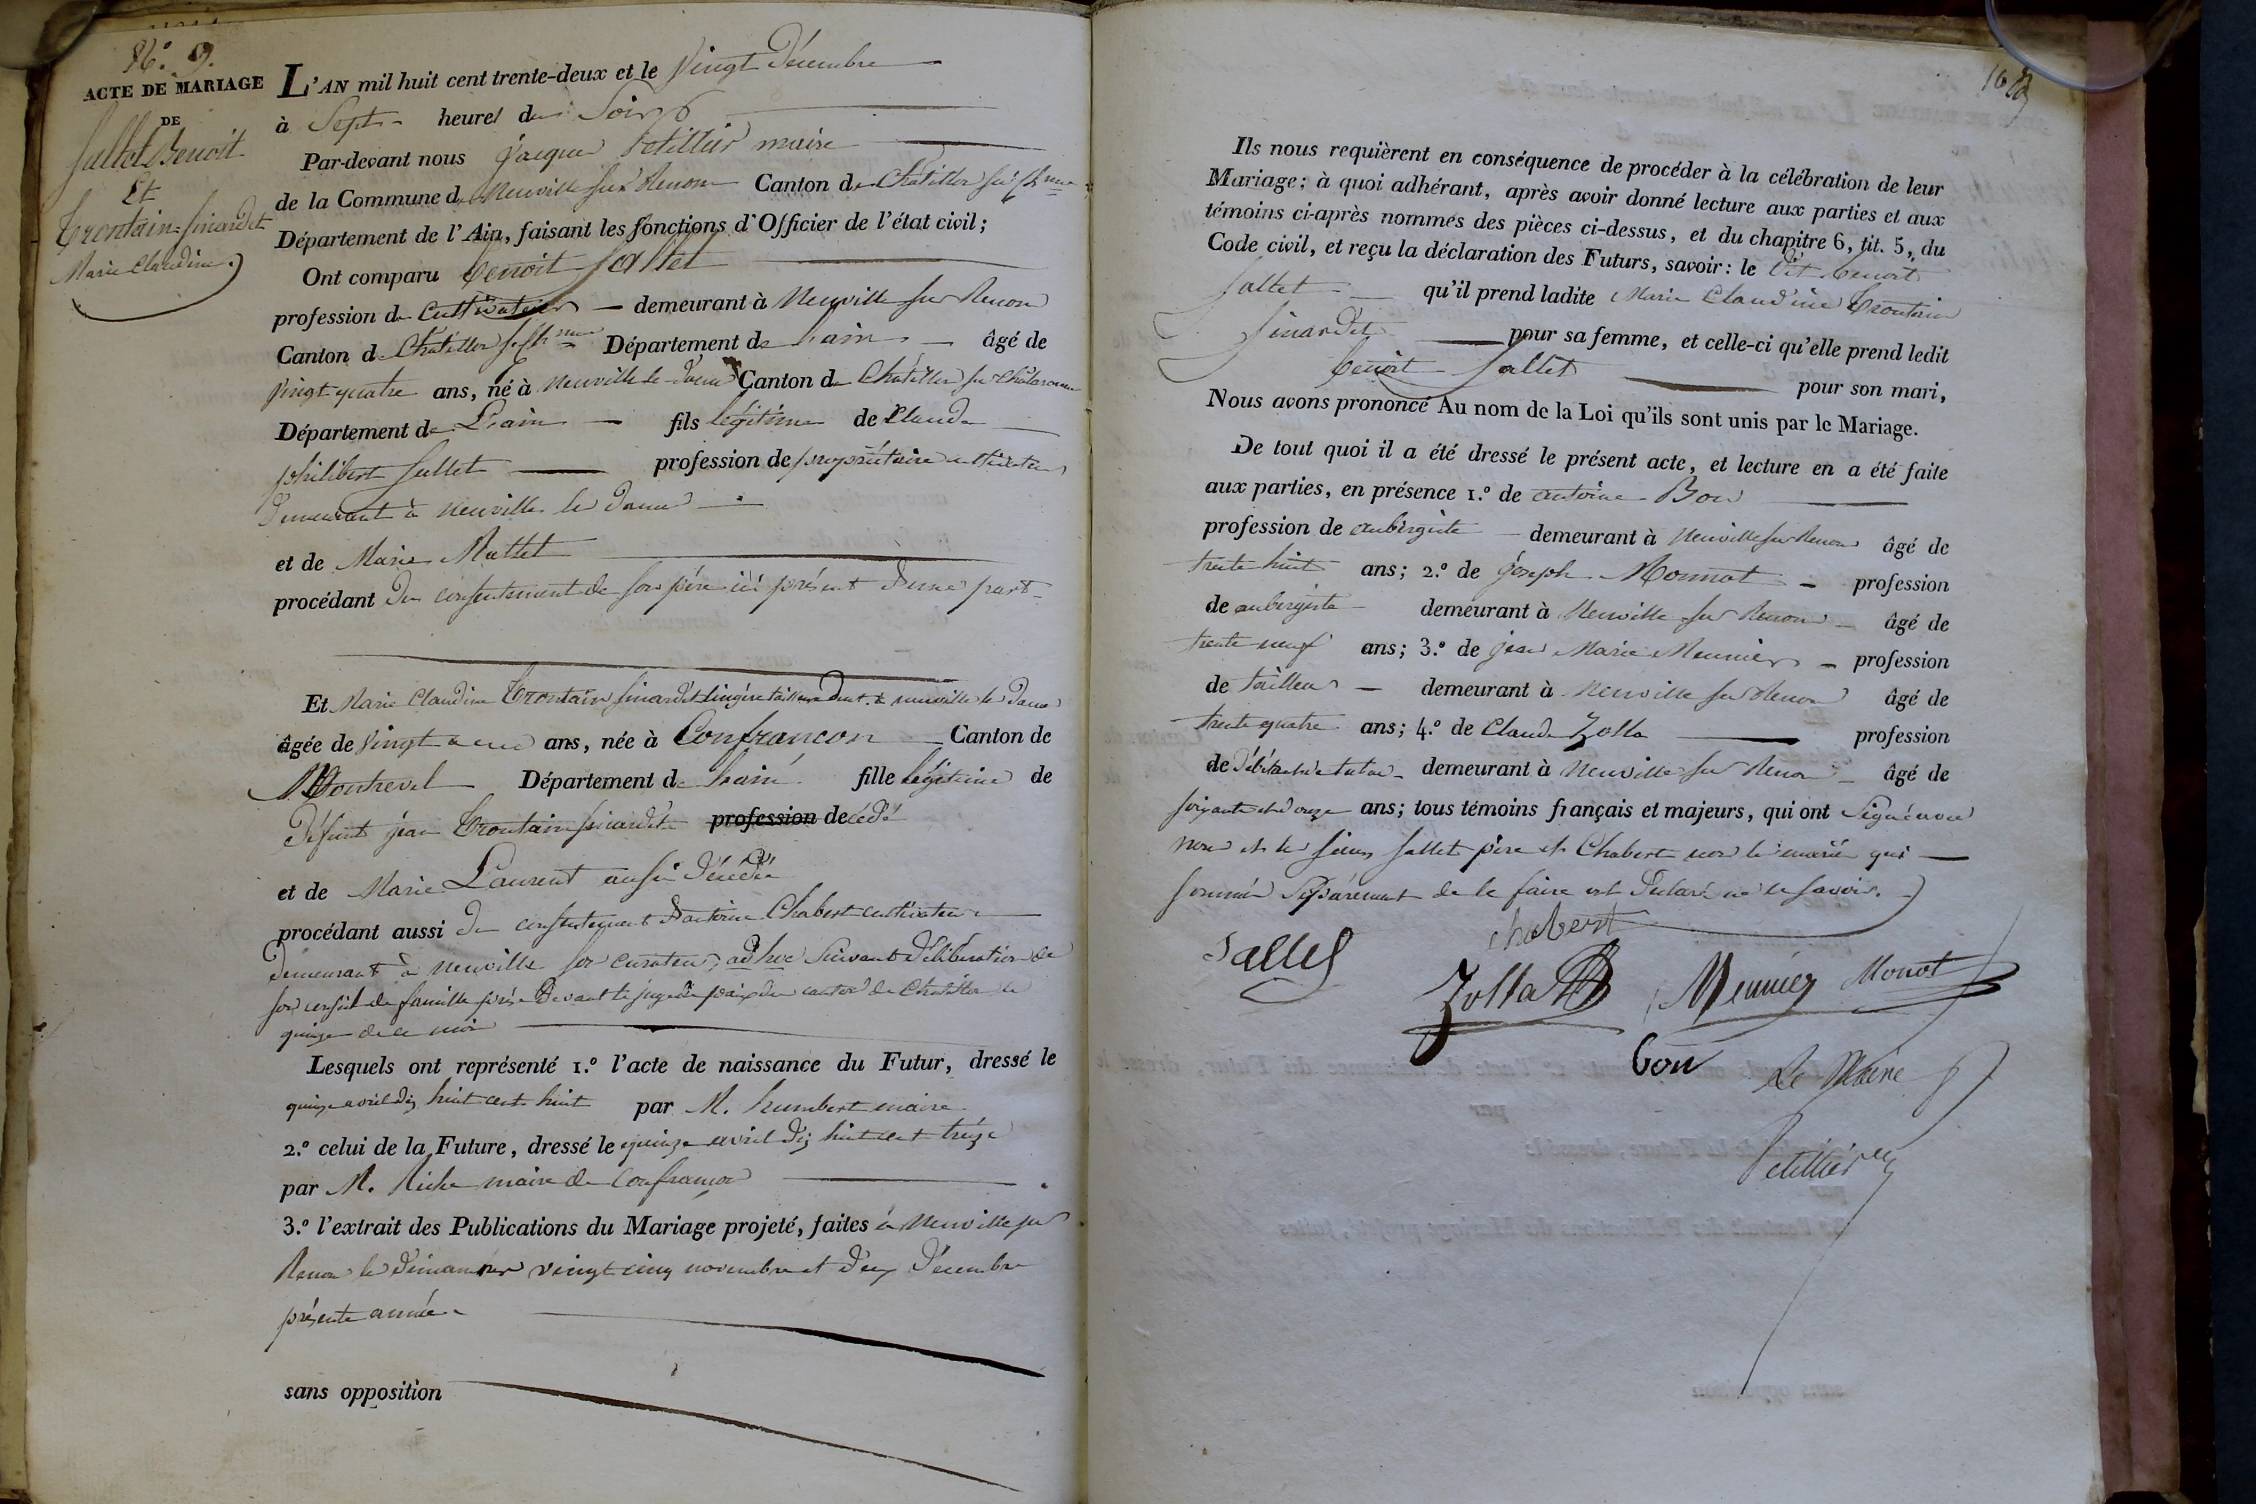 N.° 9.
ACTE DE MARIAGE
DE
Sallet Benoit
Et
Trontain-Sinardet
Marie Claudine
L'AN mil huit cent trente-deux et le Vingt Décembre
à Sept heures du Soir
Par-devant nous jacques Petillier maire
de la Commune de Neuville sur Renom Canton de Chatillon sur Ch.nne
Département de l'Ain, faisant les fonctions d'Officier de l'état civil;
Ont comparu benoit Sallet
profession de Cultivateur demeurant à Neuville sur Renom
Canton de Chatillon s. Ch.nne Département de Lain âgé de
Vingt quatre ans, né à Neuville les dames Canton de Chatillon sur Chalaronne
Département de L'ain fils légitime de Claude
philibert Sallet profession de propriétaire cultivateur
demeurant à Neuville les dames
et de Marie Mallet
procédant du consentement de son père ici présent d'une part
Et Marie Claudine Trontain Sinardet lingère tailleuse demt. à neuville les dames
âgée de Vingt ans, née à Confrancon Canton de
Montrevel Département de Lain fille légitime de
Défunt jean Trontain Sinardet profession de
et de Marie Laurent aussi décédée
procédant aussi du consentement d'antoine Chabert cultivateur
demeurant à neuville son curateur ad hoc suivant délibération de
son conseil de famille prise devant le juge de paix du canton de Chatillon le
quinze de ce mois
Lesquels ont représenté 1.° l'acte de naissance du Futur, dressé le
quinze avril dix huit cent huit par M. humbert maire
2.° celui de la Future, dressé le quinze avril dix huit cent treize
par M. Riche maire de Confrancon
3.° l'extrait des Publications du Mariage projeté, faites à Neuville sur
Renom le dimanches vingt cinq novembre et deux Décembre
présente année
sans opposition
16
Ils nous requièrent en conséquence de procéder à la célébration de leur
Mariage; à quoi adhérant, après avoir donné lecture aux parties et aux
témoins ci-après nommés des pièces ci-dessus, et du chapitre 6, tit. 5, du
Code civil, et reçu la déclaration des Futurs, savoir: le dit benoit
Sallet qu'il prend ladite Marie Claudine Trontain
Sinardet pour sa femme, et celle-ci qu'elle prend ledit
benoit Sallet pour son mari,
Nous avons prononcé Au nom de la Loi qu'ils sont unis par le Mariage.
De tout quoi il a été dressé le présent acte, et lecture en a été faite
aux parties, en présence 1.° de antoine Bon
profession de aubergiste demeurant à Neuville sur Renom âgé de
trente huit ans; 2.° de joseph Monnot profession
de aubergiste demeurant à Neuville sur Renom âgé de
trente neuf ans; 3.° de jean Marie Meunier profession
de tailleur demeurant à Neuville sur Renom âgé de
trente quatre ans; 4.° de Claude Zolla profession
de débitant de tabac demeurant à Neuville sur Renom âgé de
soixante et onze ans; tous témoins français et majeurs, qui ont Signé avec
nous et le sieurs Sallet père et Chabert non le marié qui
sommé séparément de le faire ont déclaré ne le savoir.
Sallet
Chabert
Zolla
Meunier
Monot
bon
Le Maire
Petillier